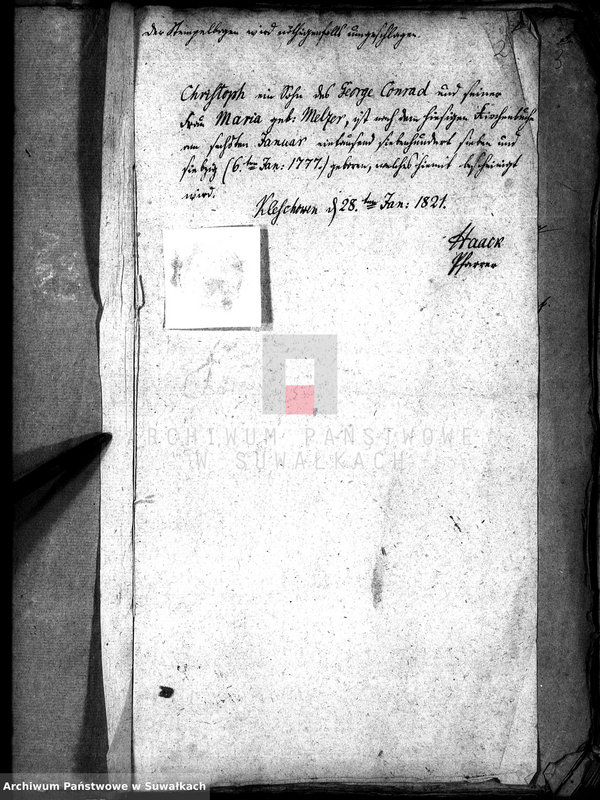 Der Stempelbogen wird nöthigenfalls umgeschlagen.
Christoph ein Sohn des George Conrad und seiner
Frau Maria geb: Melzer, ist nach dem hiesigen Kirchenbuche
am sechsten Januar eintausend siebenhundert sieben und
siebzig (6.te Jan: 1777.) geboren, welches hiemit bescheinigt
wird.
Kleschowen d 28.ten Jan: 1821.
Haack
Pfarrer
ARCHIWUM PAŃSTWOWE
W SUWAŁKACH
Archiwum Państwowe w Suwałkach